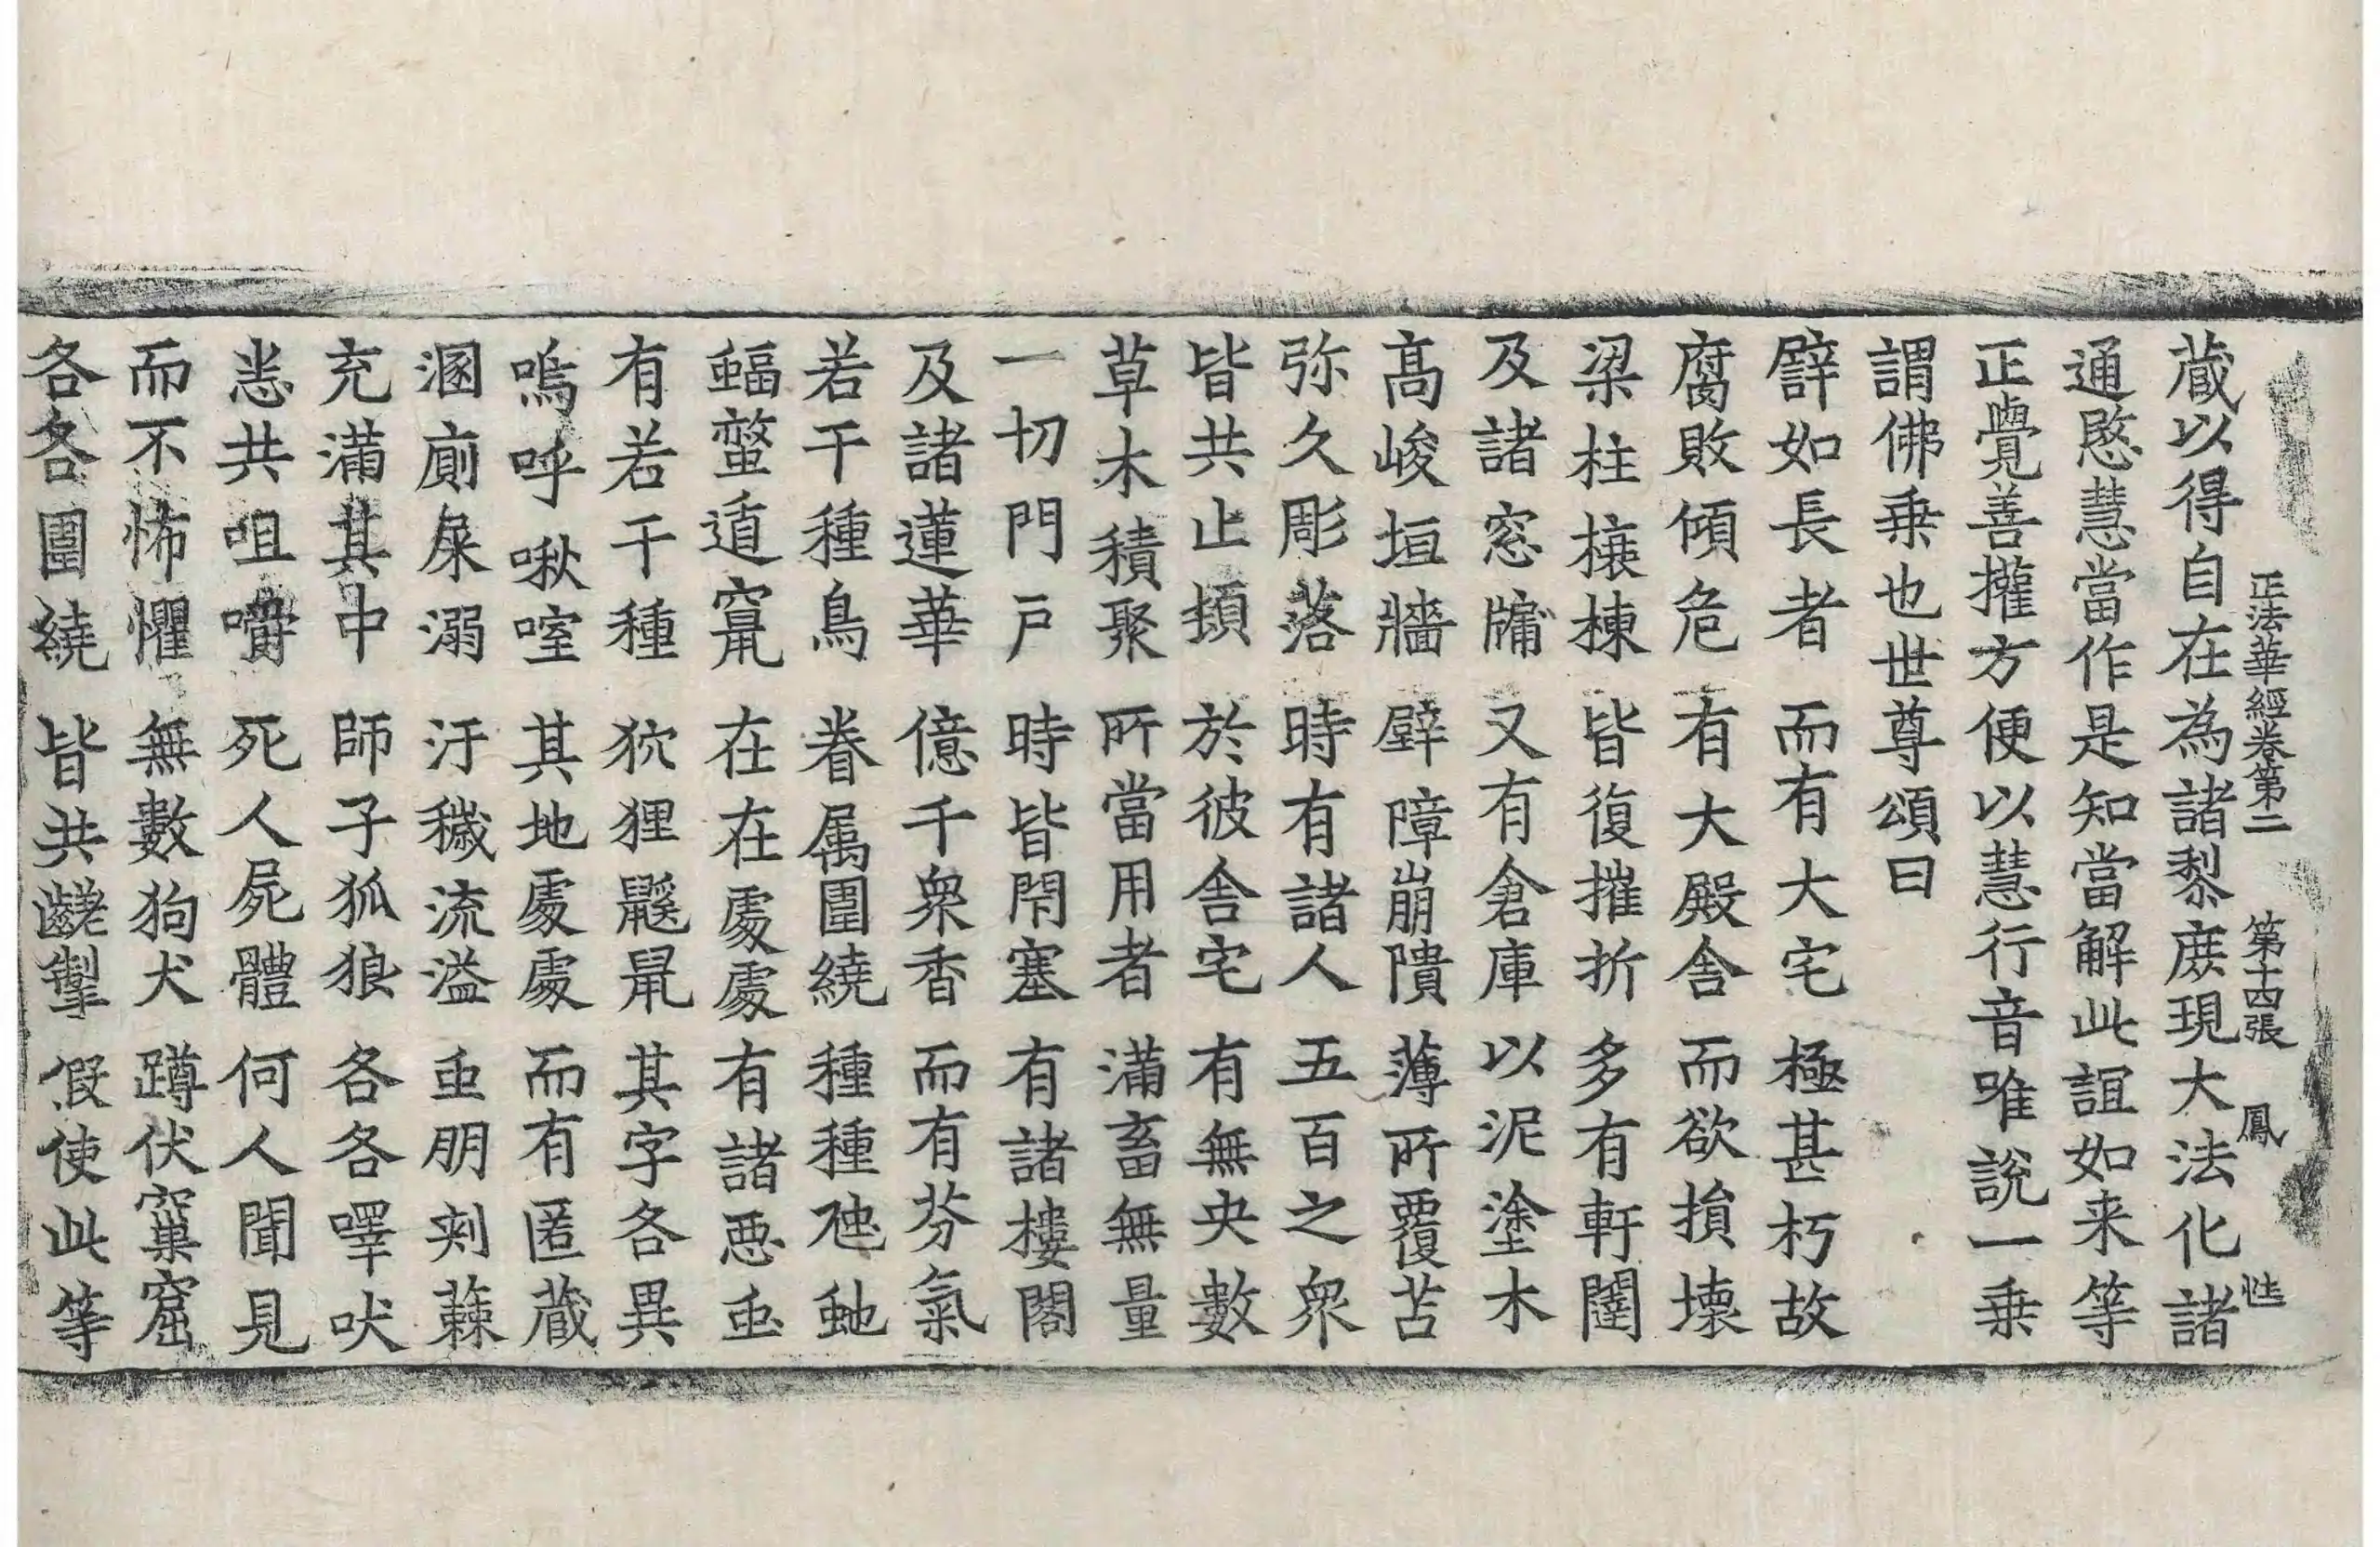 正法華經卷第二 第十四張 鳳
藏以得自在為諸黎庶現大法化諸
通慜慧當作是知當解此誼如来等
正覺善攉方便以慧行音唯說一乗
謂佛乗也世尊頌曰
譬如長者 而有大宅 極甚朽故
腐敗傾危 有大殿舎 而欲損壞
梁柱榱棟 皆復摧折 多有軒闥
及諸窓牖 又有倉庫 以泥塗木
高峻垣牆 壁障崩隤 薄所覆苫
弥久彫落 時有諸人 五百之衆
皆共止頓 於彼舎宅 有無央數
草木積聚 所當用者 滿畜無量
一切門戸 時皆閇塞 有諸樓閣
及諸蓮華 億千衆香 而有芬氣
若干種鳥 眷属圍繞 種種虺虵
蝠螫遉竄 在在處處 有諸悪䖝
有若干種 狖狸鼷鼠 其字各異
嗚呼啾喹 其地處處 而有匿藏
溷廁屎溺 汙穢流溢 䖝朋刾蕀
充滿其中 師子狐狼 各各嘷吠
悉共咀嚼 死人屍體 何人聞見
而不怖懼 無數狗犬 蹲伏窠窟
各各圍繞 皆共齩掣 假使此等